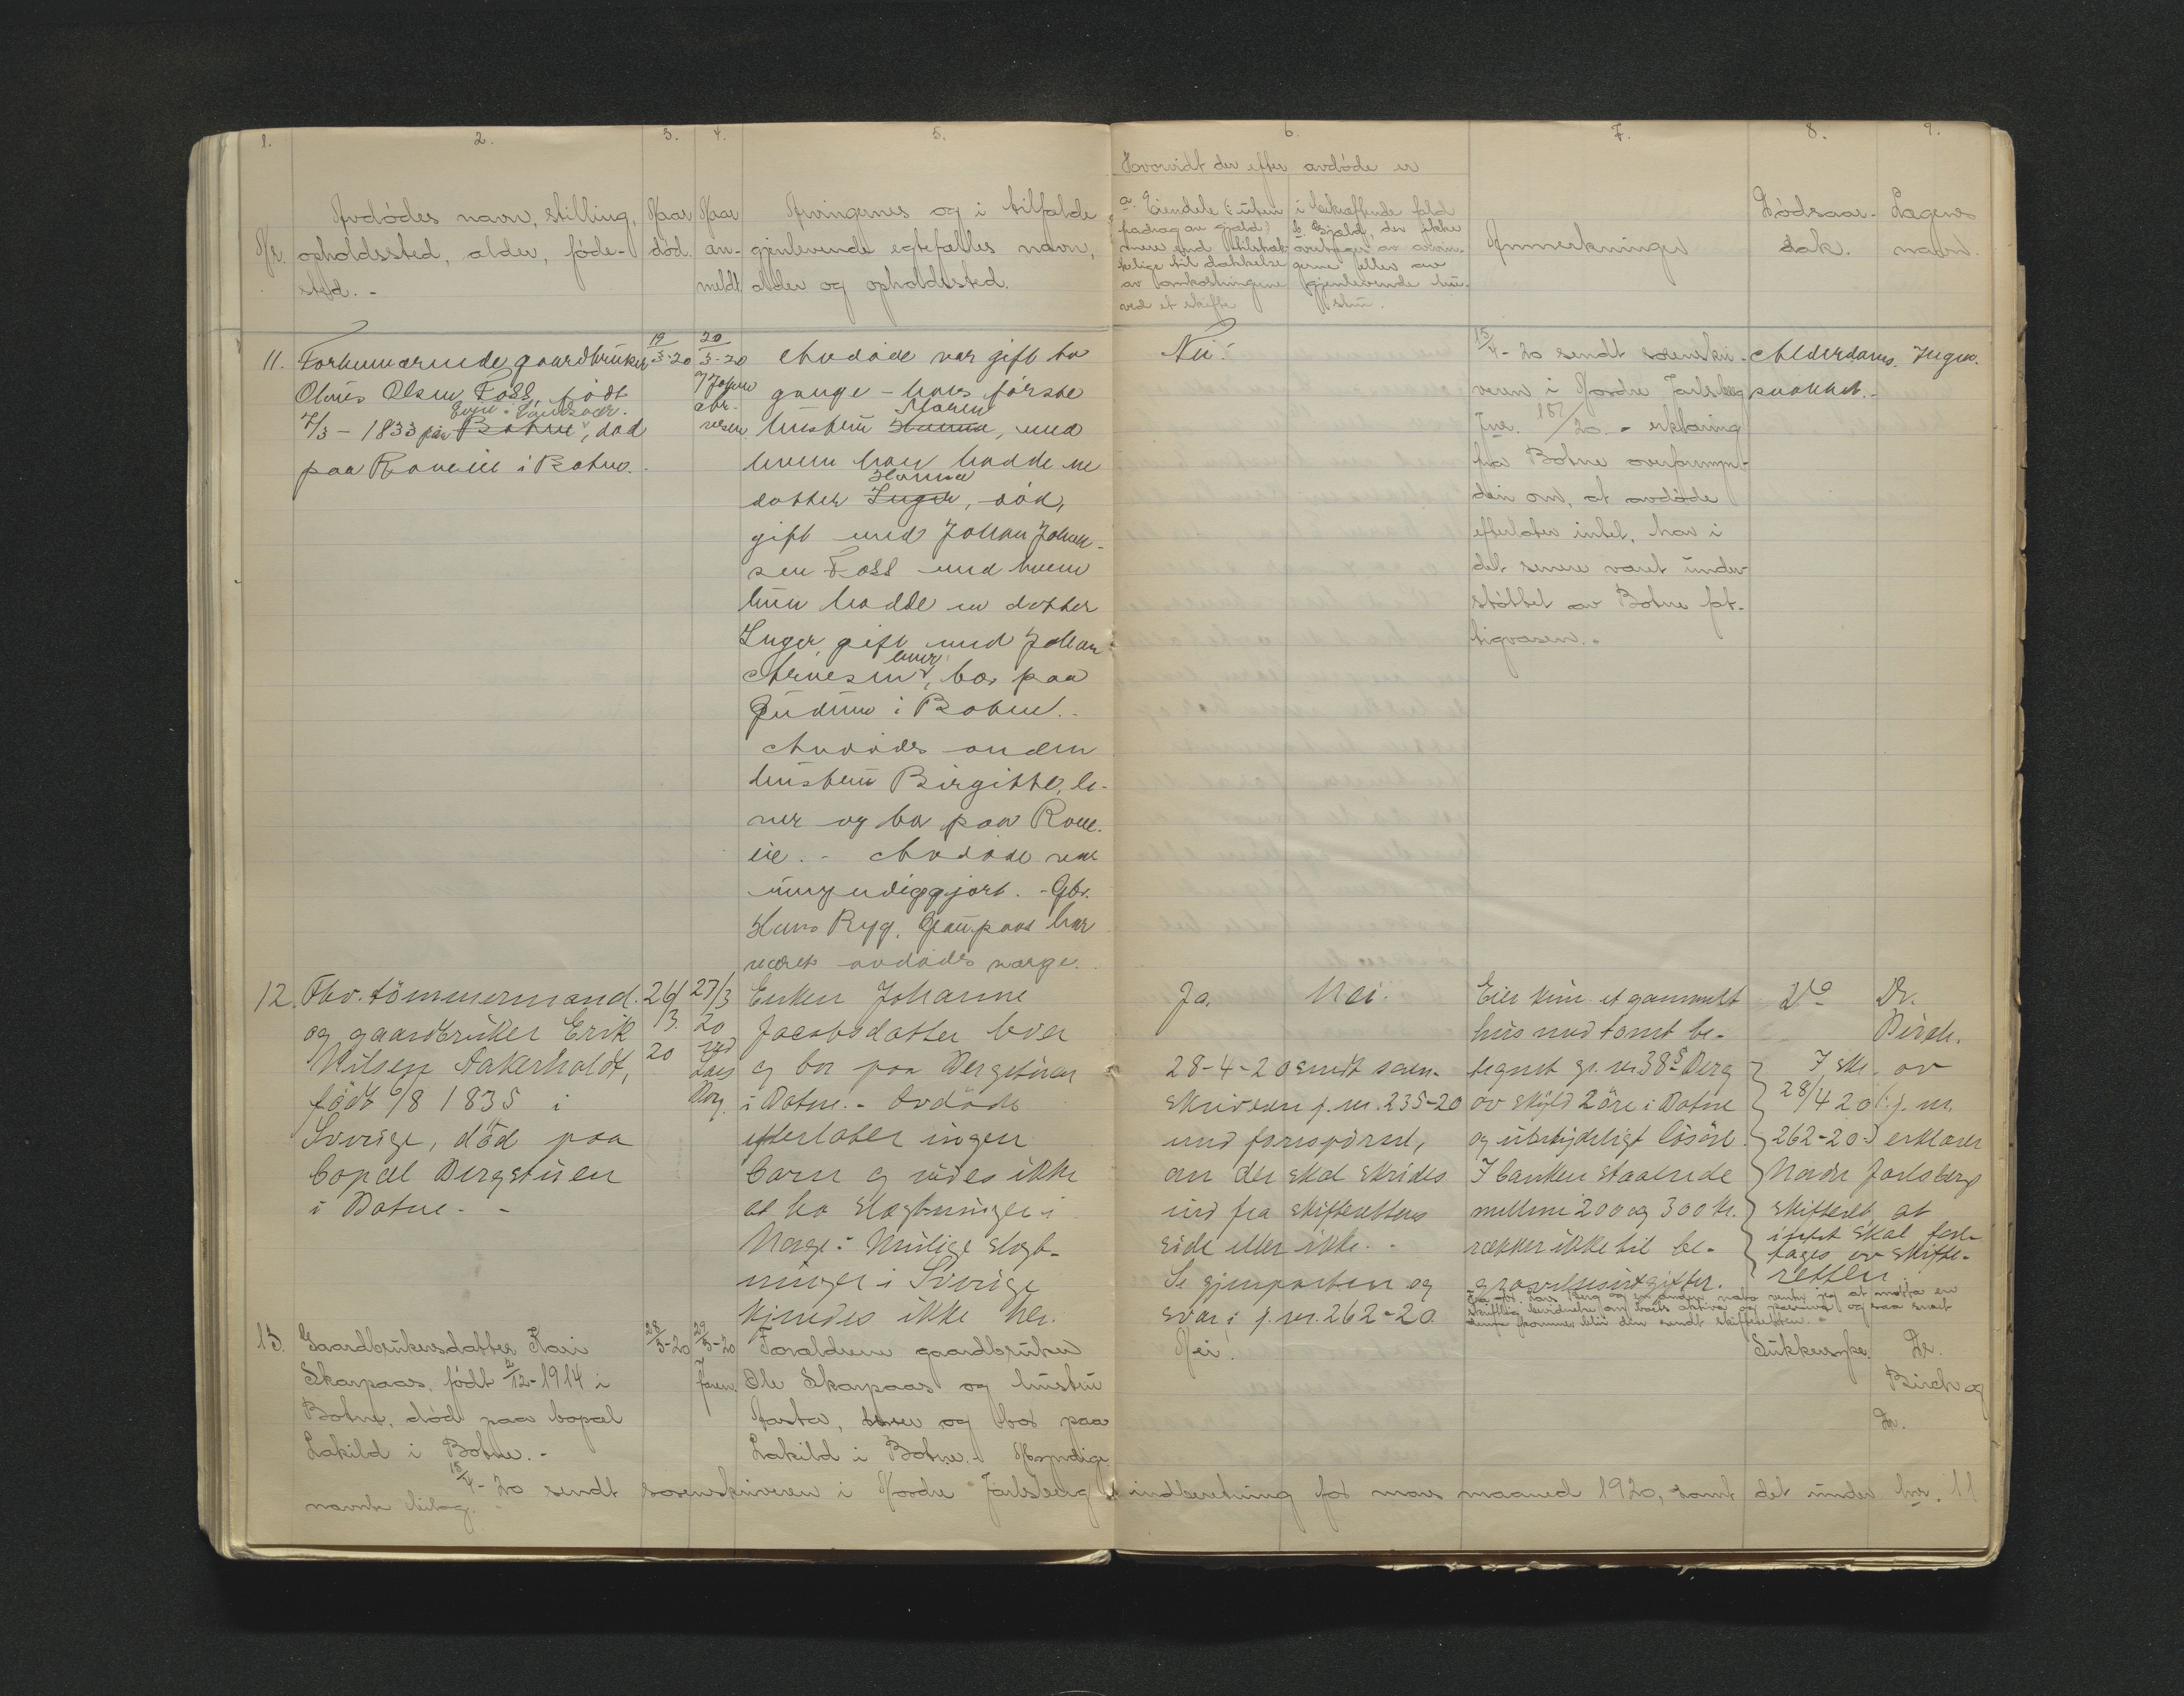 1. 2. 3. 4. 5. 6. 7. 8. 9.
Nr.
Avdödes navn, stilling,
opholdssted, alder, föde-
sted. -
Naar
död.
Naar
an-
meldt
Arvingernes og i tilfælde
gjenlevende egtefælles navn,
alder og opholdssted.
Hvorvidt der efter avdöde er
a. Eiendele (: uten
fradrag av gjæld)
mere end tilstræk-
kelige til dækkelse
av omkostningene
ved et skifte
i bekræftende fald
b. Gjæld, der ikke
overtages av arvin-
gerne eller av
gjenlevende hu-
stru.
Anmerkninger
Dödsaar-
sak.
Lægens
navn.
11. Forhenværende gaardbruker
Olaus Olsen Foss, födt
7/3 - 1833 paa Botne, död
paa Roveie i Botne.
19/3-20
20/3-20
Avdöde var gift to
gange - hans förste
Maren
hustru Hanna, med
hvem han hadde en
Hanna
datter Inger, död,
gift med Johan Johan-
sen Foss med hvem
hun hadde en datter
Inger, gift med Johan
lever
Arnesen, bor paa
Gudum i Botne. -
Avdödes anden
hustru Birgitte, le-
ver og bor paa Rove-
eie. - Avdöde var
umyndiggjort. - Gbr.
Hans Ryg, Graupaas har
været avdödes værge.
Nei.
15/4 - 20 sendt sorenskri-
veren i Nordre Jarlsberg
Jnr. 187/20. - erklæring
fra Botne overformyn-
deri om, at avdöde
efterlater intet, har i
det senere været under-
stöttet av Botne fat-
tigvæsen. -
Alderdoms-
svakket. -
Ingen.
12. Fhv. tömmermand
og gaardbruker Erik
Nilsen Aakerholdt,
födt 6/8 1835 i
Sverige, död paa
bopæl Bergstuen
i Botne. -
26/3. 20
27/3 20
ved
Lars
Berg.
Enken Johanne
Jacobsdatter lever
og bor paa Bergstuen
i Botne. - Avdöde
efterlater ingen
barn og vides ikke
at ha slegtninger i
Norge. Mulige slegt-
ninger i Sverige
kjendes ikke her.
Ja. Nei.
28-4-20 sendt soren-
skriveren j. nr. 235-20
med forespörsel,
om der skal skrides
ind fra skifterettens
side eller ikke. -
Se gjenparten og
svar i j. nr. 262-20
Eier kun et gammelt
hus med tomt be-
tegnet gr. nr 38 5 Berg
av skyld 2 öre i Botne
og ubetydeligt lösöre.
I banken staaende
mellem 200 og 300 kr.
rækker ikke til be-
gravelsesutgifter.
Do
Dr.
Birch.
I skr. av
28/4 20 (: j. nr.
262-20:) erklærer
Nordre Jarlsberg
skifteret, at
intet skal fore-
tages av skifte-
retten.
13. Gaardbrukersdatter Kari
Skarpaas, födt 2/12-1914 i
Botne, död paa bopæl
Lakild i Botne. -
28/3-20
29/3-20
Faren.
Forældrene gaardbruker
Ole Skarpaas og hustru
Aasta, lever og bor paa
Lakild i Botne. - Myndige.
Nei.
Sukkersyke.
Dr.
Birch og
Dr.
15/4 - 20 sendt sorenskriveren i Nordre Jarlsberg indberetning for mars maaned 1920, samt det under lnr. 11
nævnte bilag.